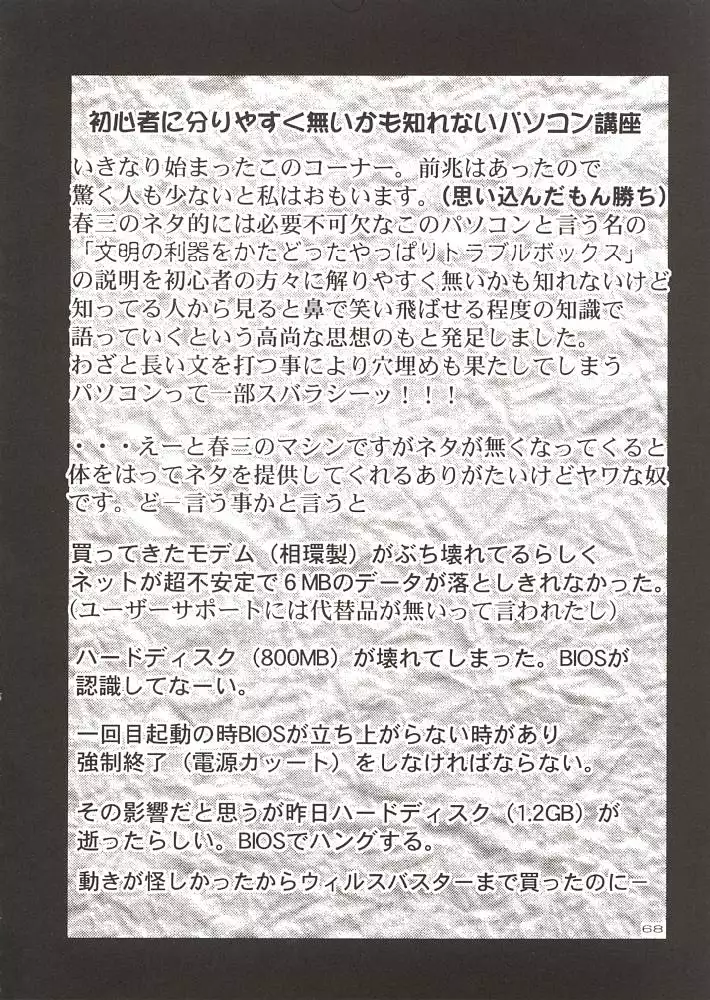 初心者に分りやすく無いかも知れないパソコン講座
いきなり始まったこのコーナー。前兆はあったので
驚く人も少ないと私はおもいます。(思い込んだもん勝ち)
春三のネタ的には必要不可欠なこのパソコンと言う名の
「文明の利器をかたどったやっぱりトラブルボックス」
の説明を初心者の方々に解りやすく無いかも知れないけど
知ってる人から見ると鼻で笑い飛ばせる程度の知識で
語っていくという高尚な思想のもと発足しました。
わざと長い文を打つ事により穴埋めも果たしてしまう
パソコンって一部スバラシーッ！！！
・・・えーと春三のマシンですがネタが無くなってくると
体をはってネタを提供してくれるありがたいけどヤワな奴
です。どー言う事かと言うと
買ってきたモデム（相環製）がぶち壊れてるらしく
ネットが超不安定で６MBのデータが落としきれなかった。
(ユーザーサポートには代替品が無いって言われたし)
ハードディスク（800MB）が壊れてしまった。BIOSが
認識してなーい。
一回目起動の時BIOSが立ち上がらない時があり
強制終了（電源カッート）をしなければならない。
その影響だと思うが昨日ハードディスク（1.2GB）が
逝ったらしい。BIOSでハングする。
動きが怪しかったからウィルスバスターまで買ったのに−
68